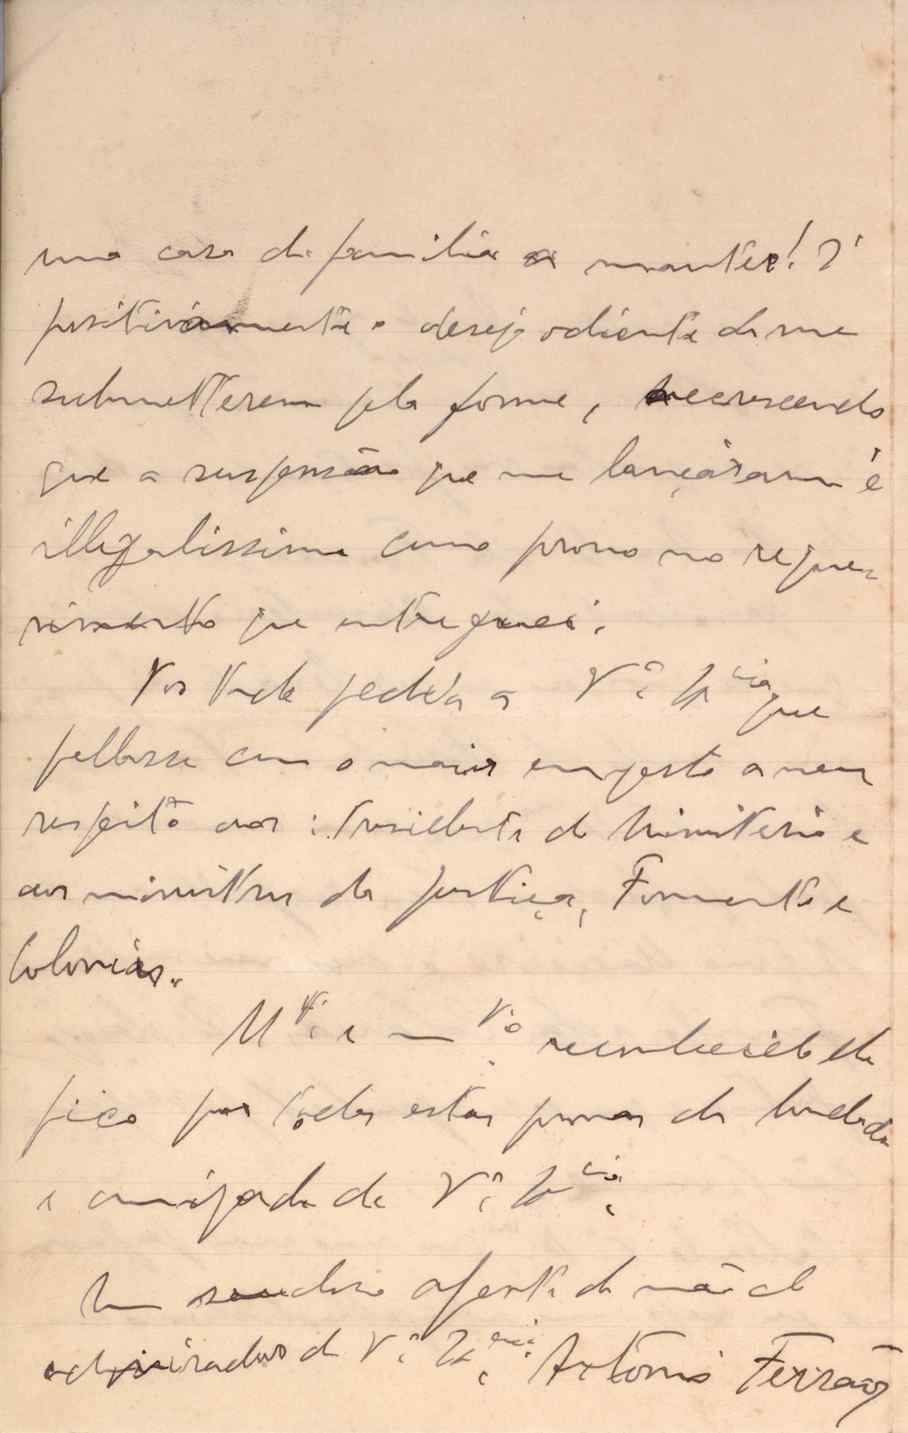 uma casa de familia a manter! É
positivamente o desejo odiento de me
submetterem pela fome, accrescendo
que a suspensão que me lançáram é
illegalissima como provo no reque-
rimento que entreguei.
Por tudo pedia a V.ª Ex.cia que
fallasse com o maior empenho a meu
respeito aos: Presidente do Ministerio e
aos ministros da Justiça, Fomento e
Colonias.
M.to e m.to reconhecido
fico por todas estas provas de bondade
e amizade de V.ª Ex.cia
Um saudoso aperto de mão do
admirador de V.ª Ex.cia Antonio Ferrão